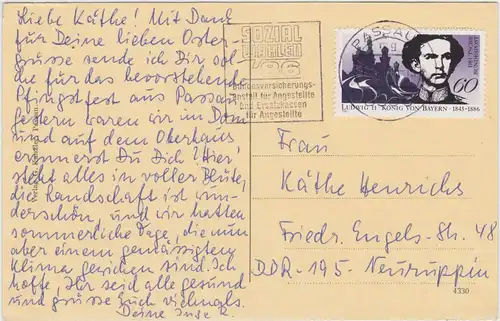 Liebe Käthe! Mit Dank
für Deine lieben Oster-
grüsse sende ich Dir sol-
che für das bevorstehende
Pfingstfest aus Passau.
Gestern waren wir im Dom
und auf dem Oberhaus
erinnerst Du Dich? Hier
steht alles in voller Blüte,
die Landschaft ist wun-
derschön, und wir hatten
sommerliche Tage, die nun
aber einem gemässigten
Klima gewichen sind. Ich
hoffe, Ihr seid alle gesund
und grüsse Euch vielmals.
Deine Inge R.
SOZIAL
WAHLEN
'86
Rentenversicherungs-
anstalt für Angestellte
und Ersatzkassen
für Angestellte
PASSAU
DEUTSCHE
BUNDESPOST
60
LUDWIG II · KÖNIG VON BAYERN · 1845-1886
Frau
Käthe Henrichs
Friedr. Engels-Str. 48
DDR-195-Neuruppin
4330